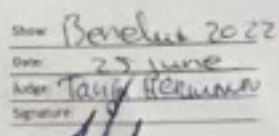 Show: Benelux 2022
Date: 25 june
Judge: Tanja Hermann
Signature: